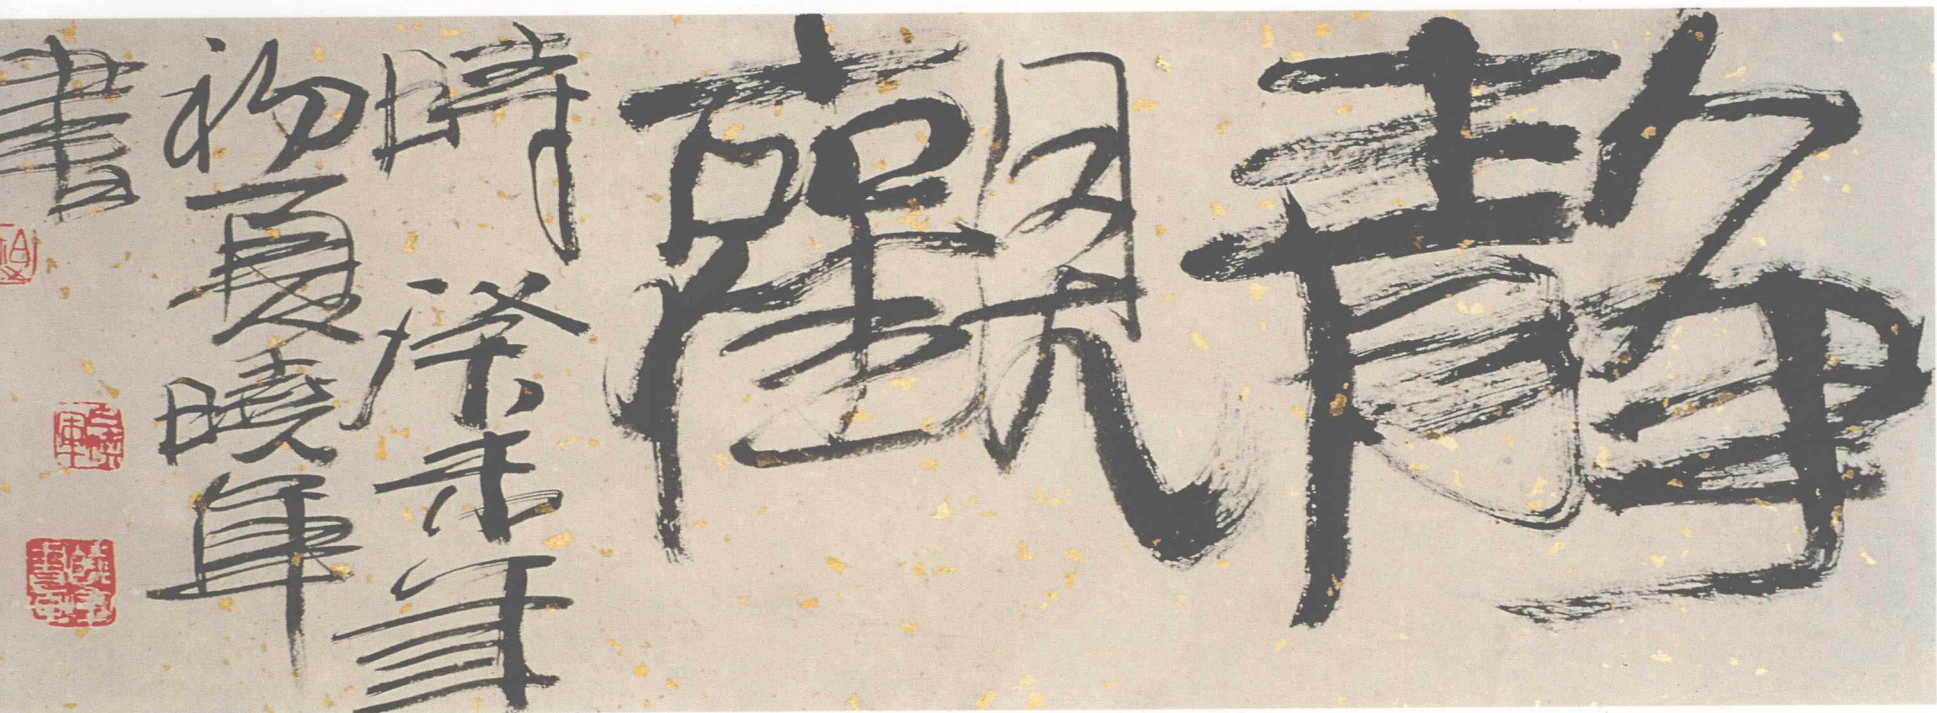 靜觀
時癸未年
初夏曉軍
書